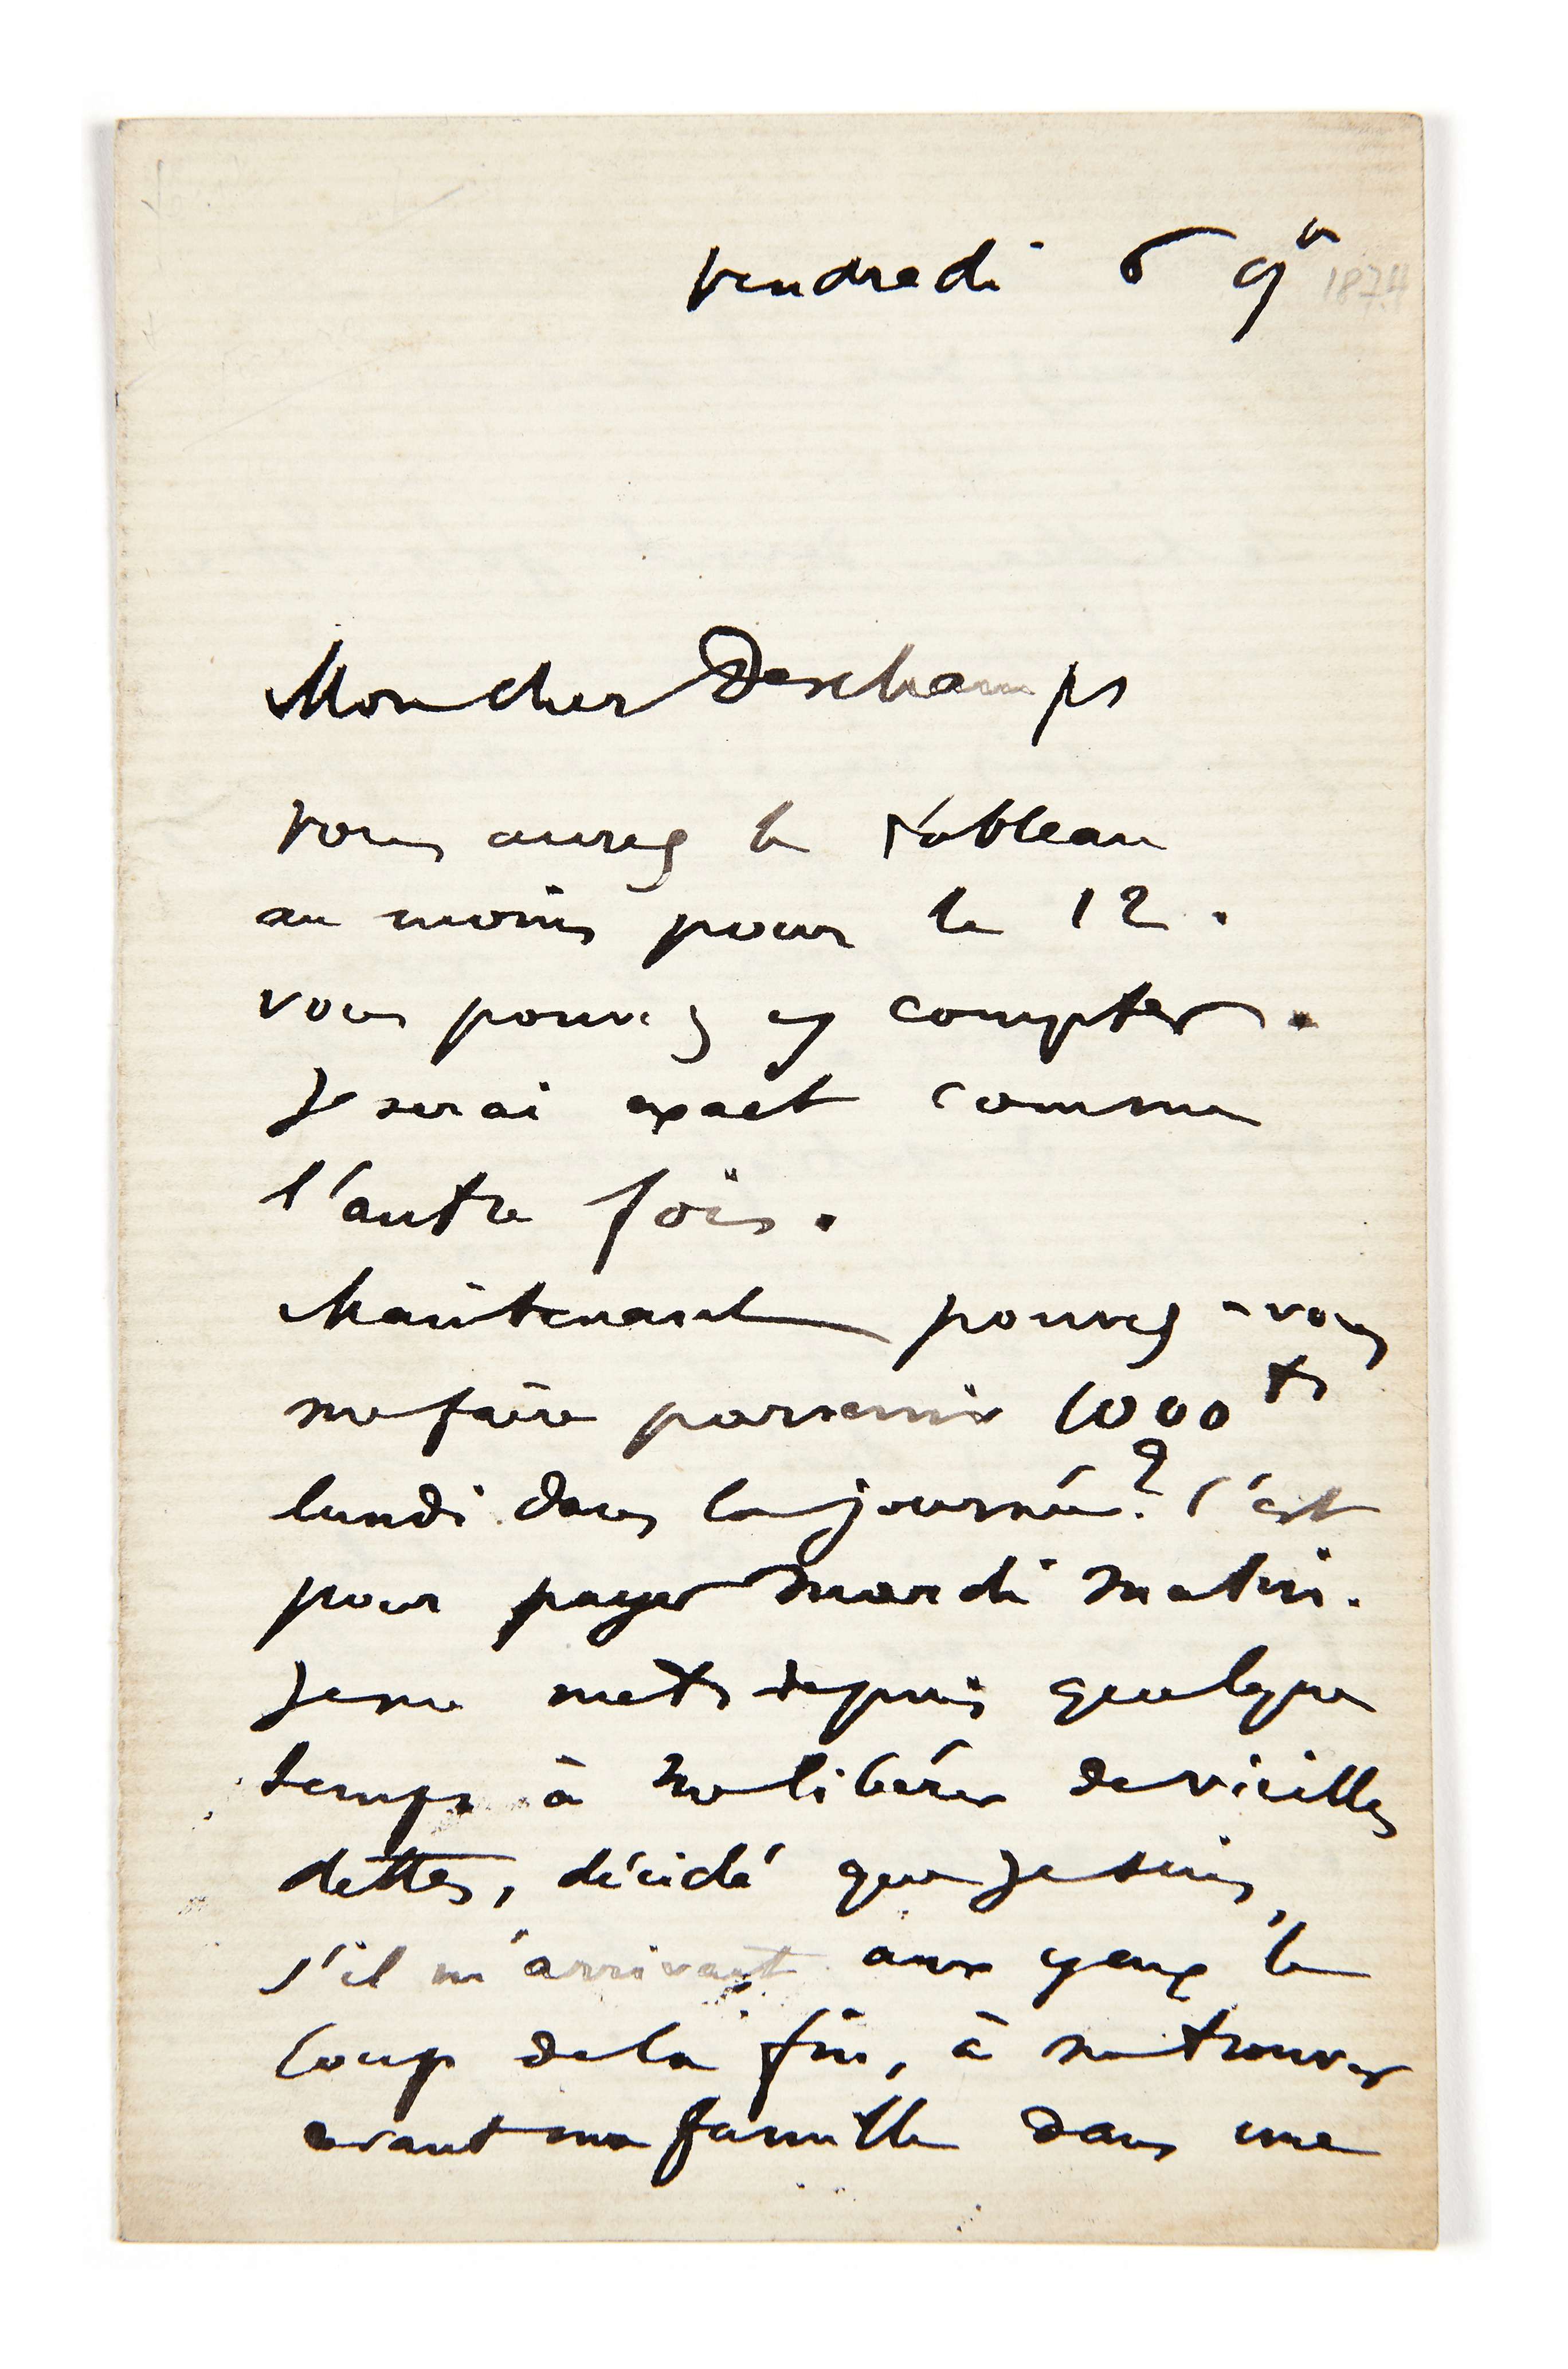 vendredi 6 9br 1874
Mon cher Deschamps
vous aurez le tableau
au moins pour le 12.
vous pouvez y compter.
Je serai exact comme
l'autre fois.
Maintenant pouvez-vous
me faire parvenir 1000 fs
lundi dans la journée? C'est
pour payer mardi matin.
Je me mets depuis quelque
temps à me libérer de vieilles
dettes, décidé que je suis,
s'il m'arrivait aux yeux le
coup de la fin, à me trouver
avant ma famille dans une